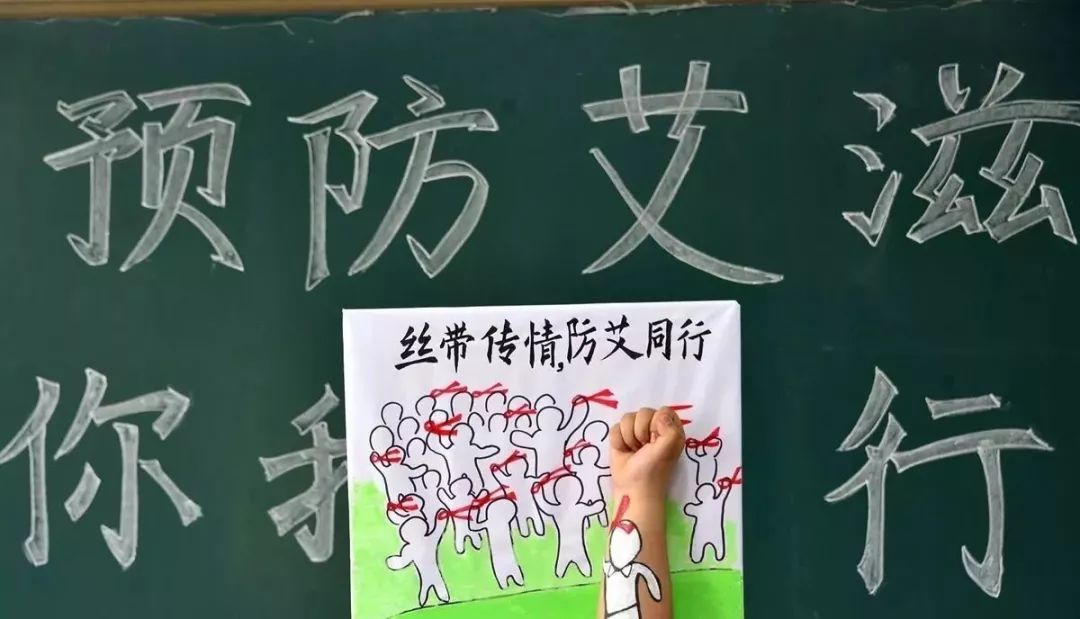 预防艾滋
丝带传情,防艾同行
你我行